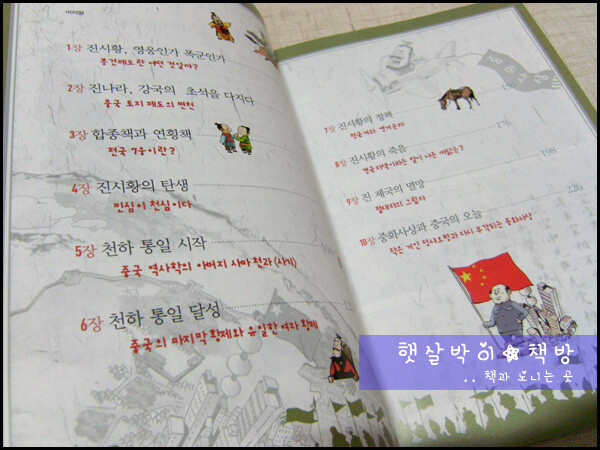 머리말
1장 진시황, 영웅인가 폭군인가
봉건제도란 어떤 것일까?
2장 진나라, 강국의 초석을 다지다
중국 토지 제도의 변천
3장 합종책과 연횡책
전국 7웅이란?
4장 진시황의 탄생
민심이 천심이다
5장 천하 통일 시작
중국 역사학의 아버지 사마천과 〈사기〉
6장 천하 통일 달성
중국의 마지막 황제와 유일한 여자 황제
7장 진시황의 정책
만리장성
8장 진시황의 죽음 176
9장 진 제국의 멸망 198
10장 중화사상과 중국의 오늘 226
작은 거인 덩샤오핑과 다시 부각되는 중화사상
햇살박이☆책방
.. 책과 노니는 곳